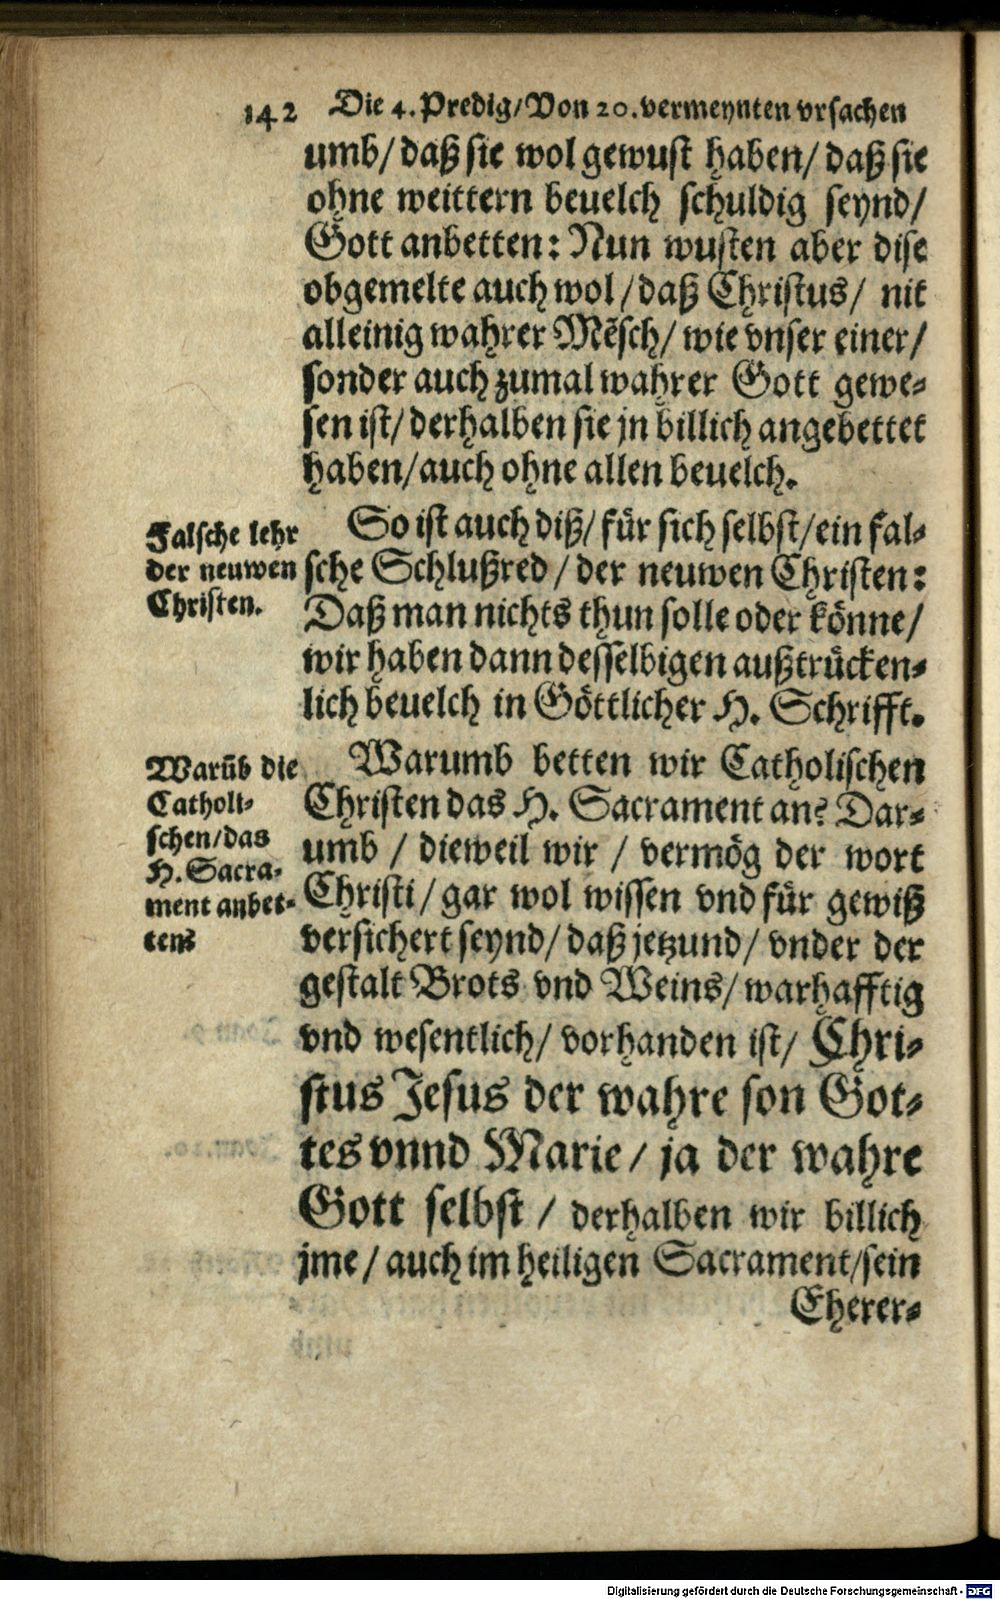 142 Die 4. Predig/Von 20. vermeynten vrsachen
umb/ daß sie wol gewust haben/ daß sie
ohne weittern beuelch schuldig seynd/
Gott anbetten: Nun wusten aber dise
obgemelte auch wol/ daß Christus/ nit
alleinig wahrer Mẽsch/ wie vnser einer/
sonder auch zumal wahrer Gott gewe-
sen ist/ derhalben sie jn billich angebettet
haben/ auch ohne allen beuelch.
Falsche lehr
der neuwen
Christen.
So ist auch diß/ fuͤr sich selbst/ ein fal-
sche Schlußred/ der neuwen Christen:
Daß man nichts thun solle oder koͤnne/
wir haben dann desselbigen außtruͤcken-
lich beuelch in Goͤttlicher H. Schrifft.
Warũb die
Catholi-
schen/das
H. Sacra-
ment anbet-
ten?
Warumb betten wir Catholischen
Christen das H. Sacrament an? Dar-
umb / dieweil wir / vermoͤg der wort
Christi/ gar wol wissen vnd fuͤr gewiß
versichert seynd/ daß jetzund/ vnder der
gestalt Brots vnd Weins/ warhafftig
vnd wesentlich/ vorhanden ist/ Chri-
stus Jesus der wahre son Got-
tes vnnd Marie/ ja der wahre
Gott selbst / derhalben wir billich
jme/ auch im heiligen Sacrament/sein
Eherer-
Digitalisierung gefördert durch die Deutsche Forschungsgemeinschaft - DFG